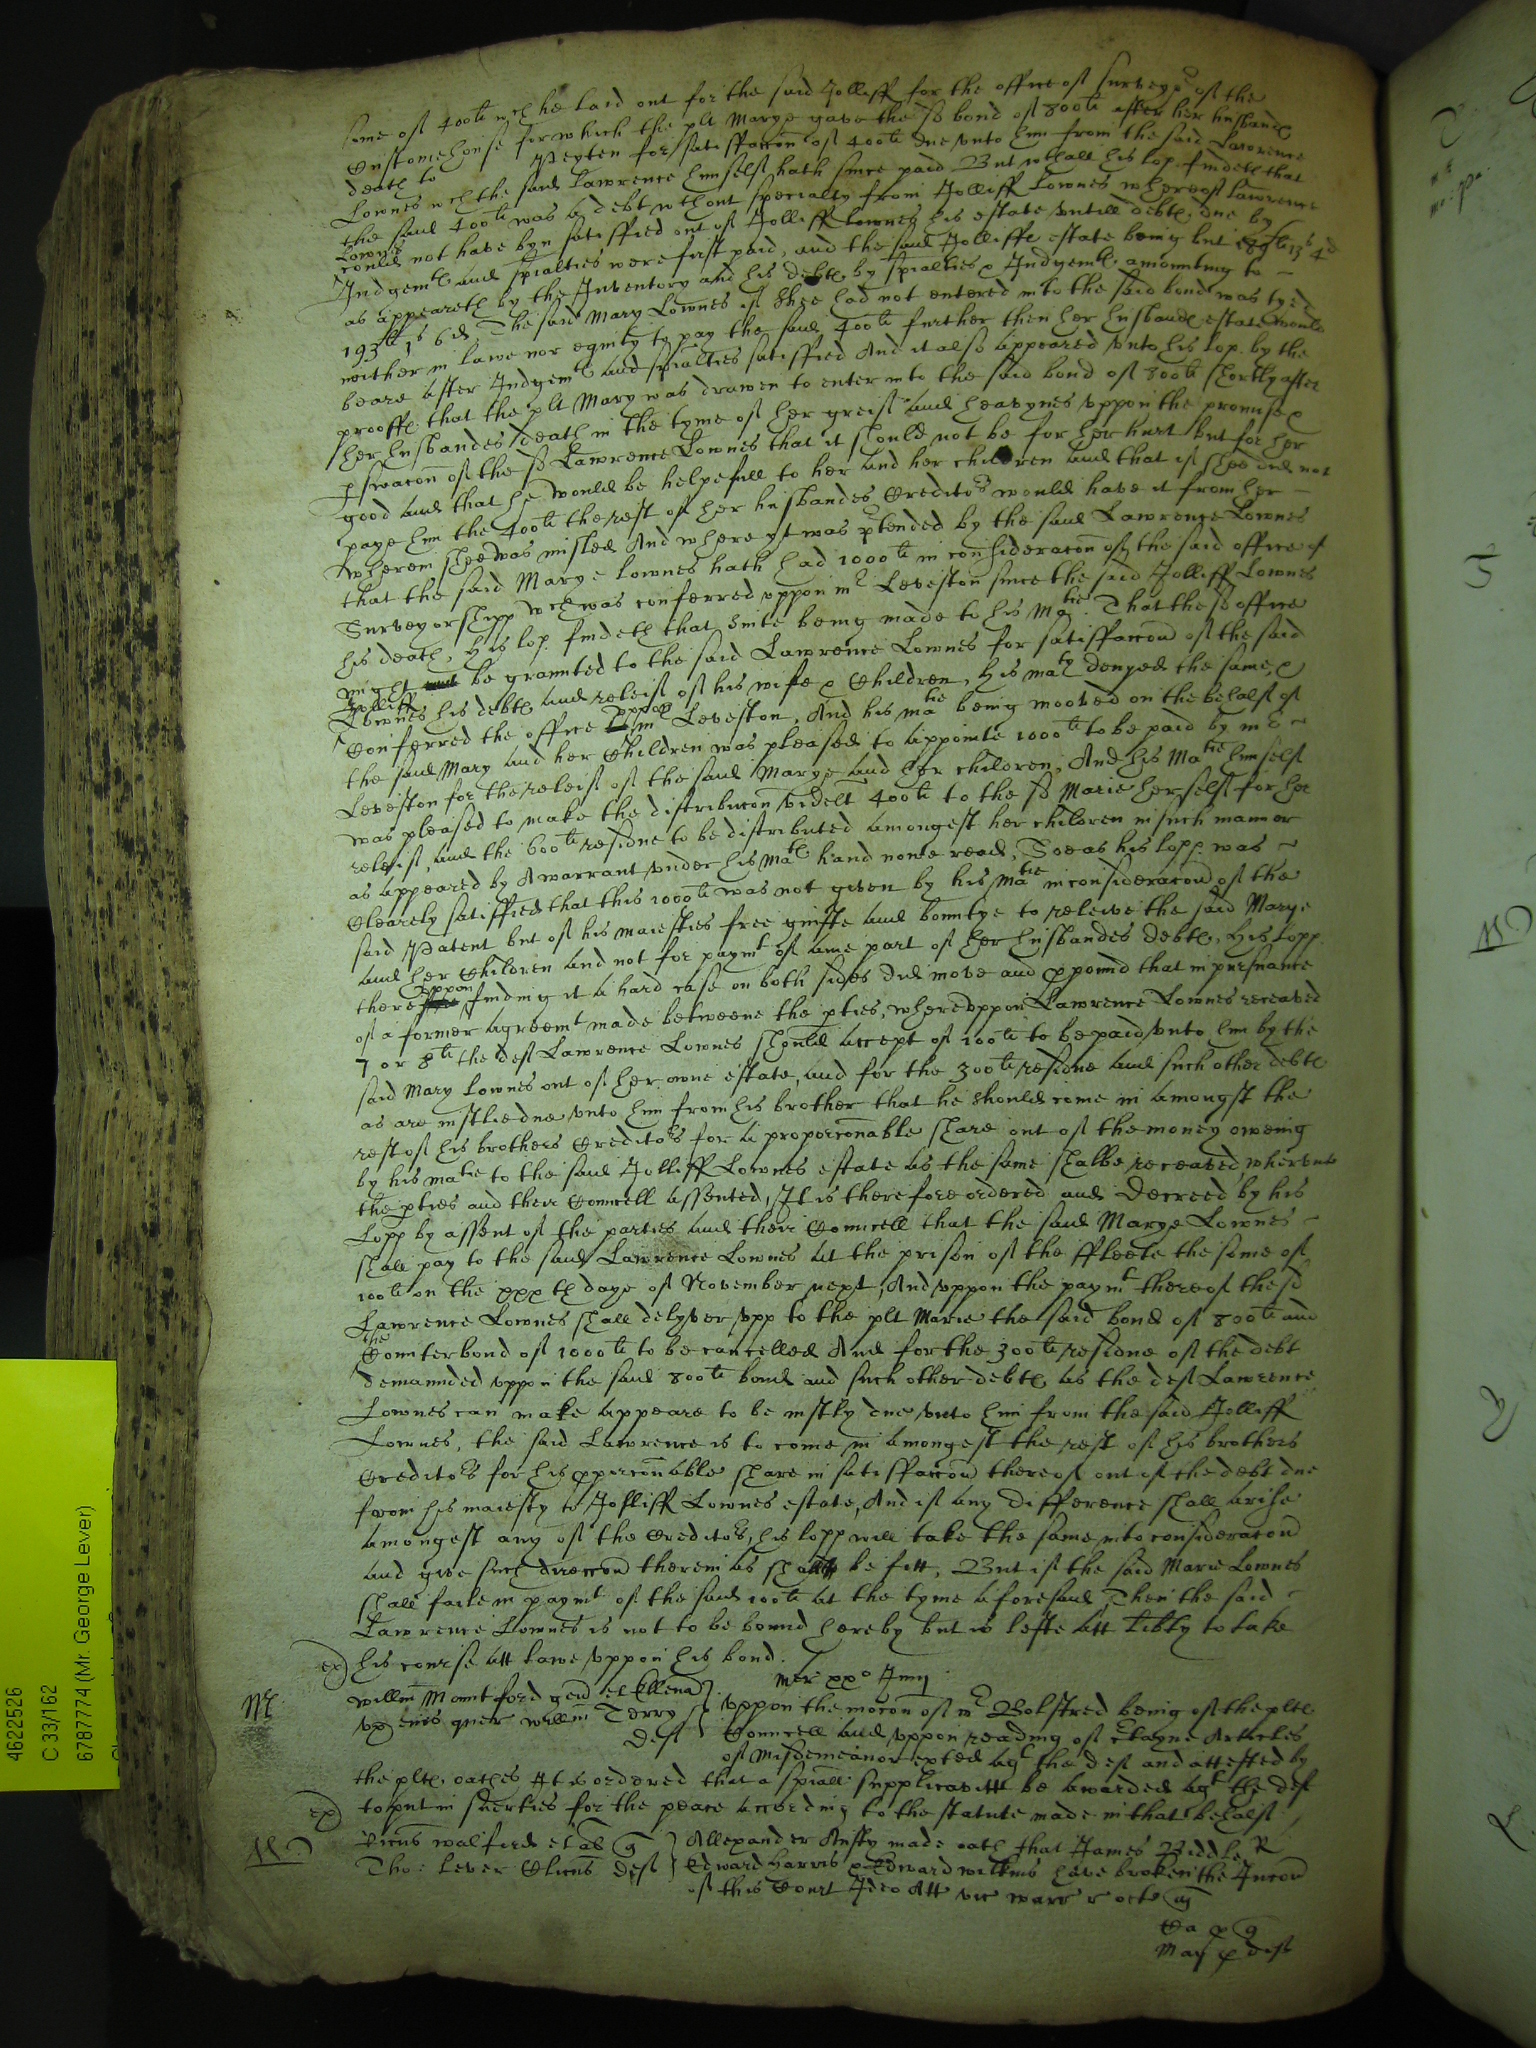 some of 400li wch he laid out for the said Jolliff for the office of survey:r of the
Customehouse for which the plt Marye gave the sd bond of 800li after her husbande
death to Peyten for satisfaccon of 400li due unto him from the said Lawrence
Lownes wch the said Lawrence himself hath since paid But wthall his lop. findeth that
the said 400li was a debt wthout specialty from Jolliff Lownes whereof Lawrence
Lownes could not have byn satisfied out of Jolliff Lownes his estate untill debte due by
Judgemte and spialties were first paid, and the said Jolliffe estate being but 13s 4d
as appeareth by the Inventory and his debte by spialties & Judgemte amounting to
193li 1s 6d, The said Mary Lownes if shee had not entered into the said bond was tyed
neither in lawe nor equity to pay the said 400li further then her husbande estate would
beare after Judgemte and spialties satisfied And it also appeared unto his lop. by the
prooffe that the plt Mary was drawen to enter into the said bond of 800li shortly after
her husbandes death in the tyme of her greif and heavynes uppon the promise &
pswacon of the sd Lawrence Lownes that it should not be for her hurt but for her
good and that he would be helpefull to her and her children and that if shee did not
paye him the 400li the rest of her husbandes Creditors would have it from her
wherein shee was misled And where yt was ptended by the said Lawrence Lownes
that the said Marye Lownes hath had 1000li in consideracon of the said office of
Surveyorshipp wch was conferred uppon mr Leveston since the said Jolliff Lownes
his death, His lop. findeth that suite being made to his Matie. That the sd office
might be graunted to the said Lawrence Lownes for satisfaccon of the said
Jolliff Lownes his debte and releif of his wife & Children, His maty denyed the same, &
Conferred the office uppon mr Leveston, And his matie being mooved on the behalf of
the said Mary and her Children was pleased to appointe 1000li to be paid by mr
Leveston for the releif of the said Marye and her children, And his Matie himself
was pleased to make the distribucon videlt 400li to the sd Marie herself for her
releif, and the 600li residue to be distributed amongest her children in such manner
as appeared by a warrant under his mate hand nowe read, Soe as his lopp. was
Clearely satisfied that this 1000li was not given by his Matie in consideracon of the
said Patent but of his maiesties free guifte and bountye to releive the said Marye
and her Children and not for paymt of anie part of her husbandes debte, His lopp.
thereuppon finding it a hard case on both sides did move and ppound that in pursuance
of a former agreemt made betweene the pties, whereuppon Lawrence Lownes receaved
7 or 8li the deft Lawrence Lownes should accept of 100li to be paid unto him by the
said Mary Lownes out of her owne estate, and for the 300li residue and such other debte
as are iustlie due unto him from his brother that he should come in amongst the
rest of his brothers Creditors for a proporconable share out of the money oweing
by his matie to the said Jolliff Lownes estate as the same shalbe receaved, whereunto
the pties and their Councell assented, It is therefore ordered and Decreed by his
Lopp by assent of the parties and their Councell that the said Marye Lownes
shall pay to the said Lawrence Lownes at the prison of the ffleete the some of
100li on the xxxth daye of November next, And uppon the paymt thereof the sd
Lawrence Lownes shall delyver upp to the plt Marie the said bond of 800li and
the Counterbond of 1000li to be cancelled And for the 300li residue of the debt
demaunded uppon the said 800li bond and such other debte as the deft Lawrence
Lownes can make appeare to be iustly due unto him from the said Jolliff
Lownes, the said Lawrence is to come in amongest the rest of his brothers
Creditors for his pporconable share in satisfaccon thereof out of the debt due
from his maiesty to Jolliff Lownes estate, And if any difference shall arise
amongest any of the Creditors, his lopp will take the same into consideracon
and give such direccon therein as shall be fitt, But if the said Marie Lownes
shall faile in paymt of the said 100li at the tyme aforesaid, Then the said
Lawrence Lownes is not to be bound hereby but is lefte att libty to take
ex) his course att lawe uppon his bond.
Mer xxo Junij
Willm Mountford gen et Ellena
ux eius quer Willm Terry
deft
Uppon the mocon of mr Bolstred being of the plte
Councell and uppon reading of ctayne Articles
of Misdemeanor exted agt the deft and attested by
the plte. oathes It is ordered that a spiall supplicavitt be awarded agt the deft
ex) to put in suerties for the peace according to the statute made in that behalf
Walford et al q
Tho: Lever Clicus deft
Allexander made oath that James Biddle
Edward Harris Edward Wilkins have broken the Iniunccon
of this Court Ideo Att vic warr r octo
4622526
C 33/162
6787774 (Mr. George Lever)